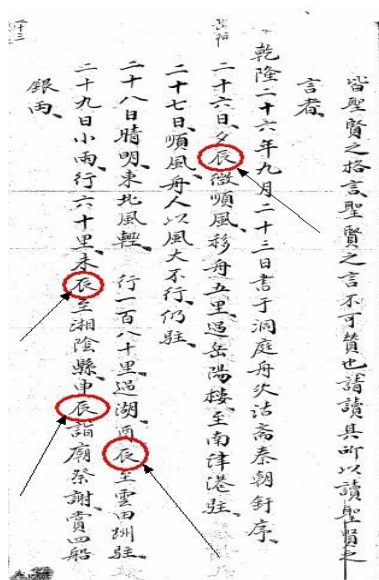 皆聖賢之格言聖賢之言不可贊也請讀其所以讀聖賢之
言者、
乾隆二十六年九月二十三日書于洞庭舟次沽斋秦朝釪序、
二十六日、夕辰微順風移舟五里過岳陽樓至南津港駐、
二十七日、順風舟人以風大不行、仍駐、
二十八日晴明、東北風輕、行一百八十里過湖、酉辰至雲田洲駐、
二十九日小雨、行六十里、未辰至湘陰縣、申辰詣廟祭謝賞四船
銀両、
二十三